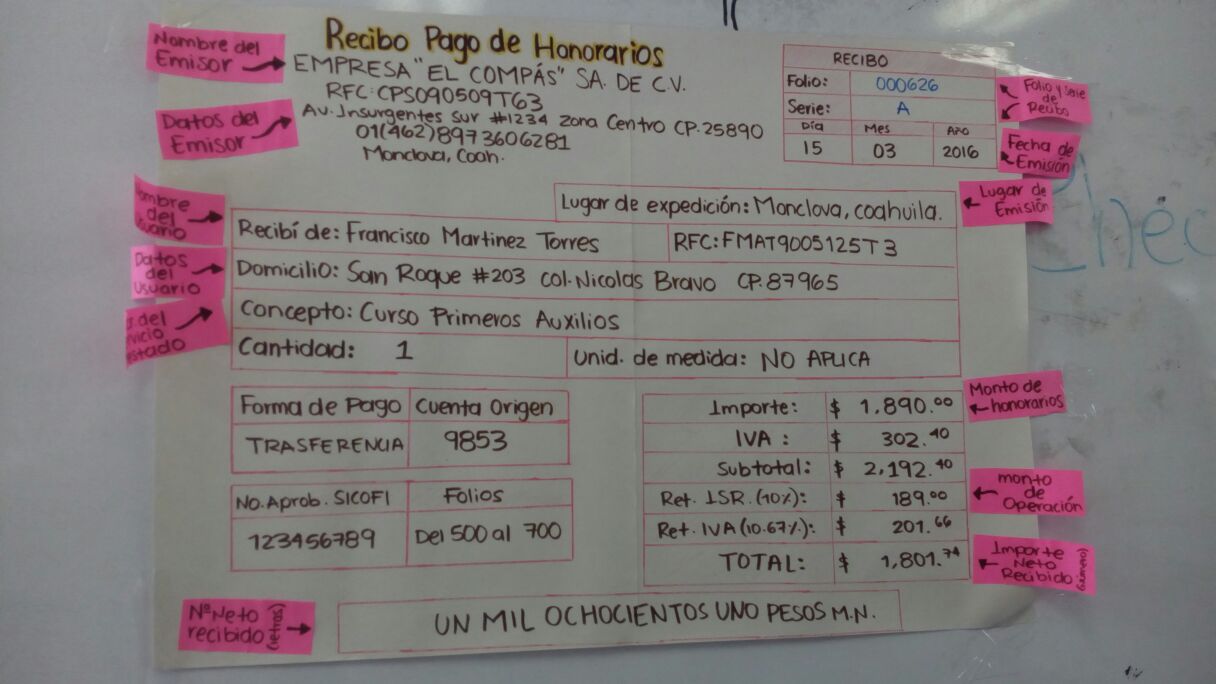 Recibo Pago de Honorarios
Nombre del
Emisor
EMPRESA "EL COMPÁS" SA. DE C.V.
RFC: CPS090509T63
Datos del
Emisor
Av. Insurgentes sur #1234 zona Centro CP. 25890
01(462)8973606281
Monclova, Coah.
RECIBO
Folio: 000626
Serie: A
Día Mes Año
15 03 2016
Folio y serie
de
Recibo
Fecha de
Emisión
Lugar de expedición: Monclova, coahuila.
Lugar de
Emisión
Nombre
del
Usuario
Recibí de: Francisco Martinez Torres RFC: FMAT9005125T3
Datos
del
Usuario
Domicilio: San Roque #203 col. Nicolas Bravo CP. 87965
del
Concepto: Curso Primeros Auxilios
Cantidad: 1 Unid. de medida: NO APLICA
Forma de Pago Cuenta Origen
TRASFERENCIA 9853
No. Aprob. SICOFI Folios
123456789 Del 500 al 700
Importe: $ 1,890.00
IVA : $ 302.40
Subtotal: $ 2,192.40
Ret. ISR. (10%): $ 189.00
Ret. IVA (10.67%): $ 201.66
TOTAL: $ 1,801.74
Monto de
honorarios
monto
de
Operación
Importe
Neto
Recibido
(número)
Nº Neto
recibido
(letras)
UN MIL OCHOCIENTOS UNO PESOS M.N.